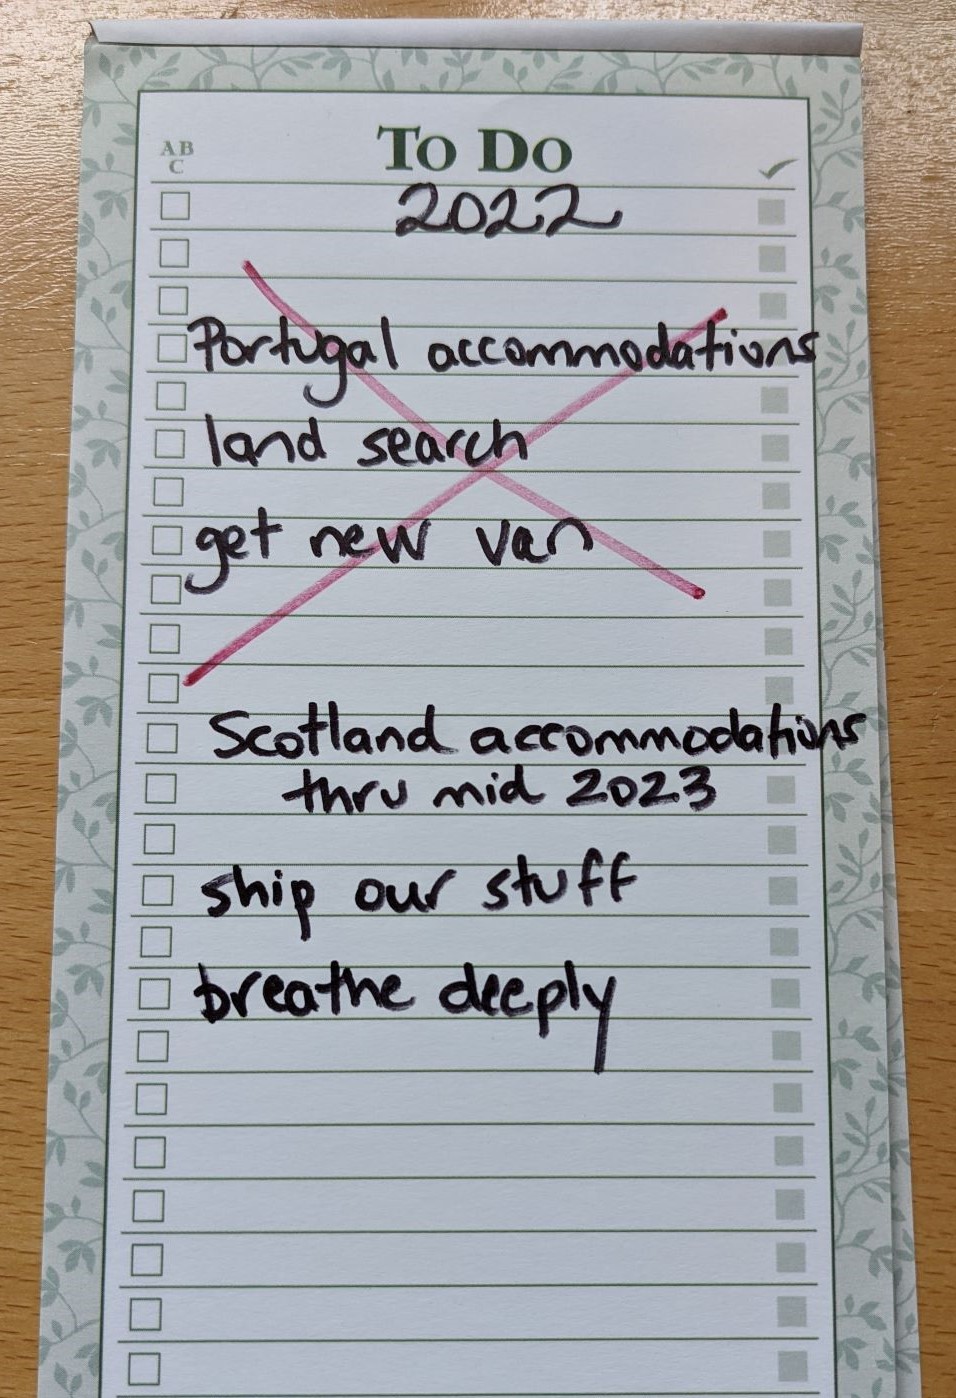 AB
C
To Do
2022
Portugal accommodations
land search
get new van
Scotland accommodations
thru mid 2023
ship our stuff
breathe deeply